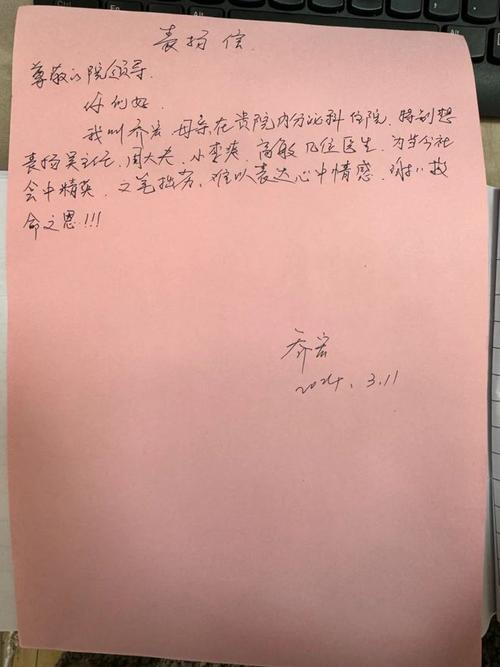 表扬信
尊敬的院领导
你们好
我叫乔宏 母亲在贵院内分泌科住院 特别想
表扬吴主任、周大夫、小栾爽、高敏几位医生、为当今社
会中精英、文笔拙劣、难以表达心中情感、谢谢救
命之恩!!!
乔宏
2024. 3.11